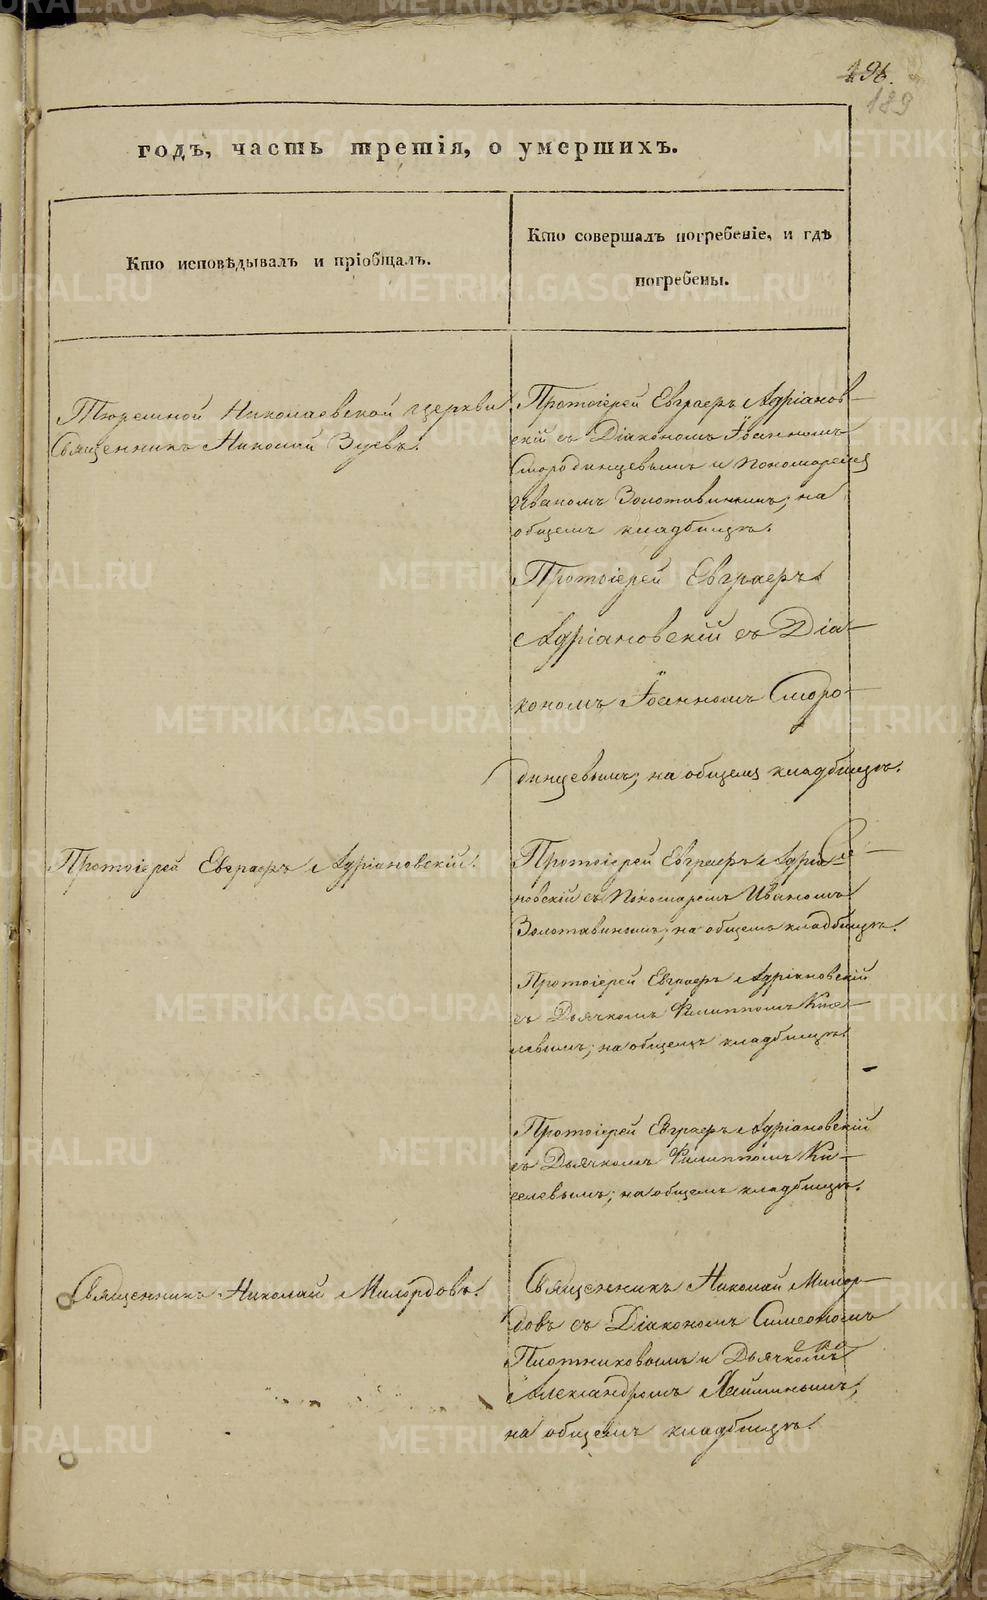 196.
189
годъ, часть третія, о умершихъ.
Кто исповѣдывалъ и пріобщалъ.
Кто совершалъ погребеніе, и гдѣ
погребены.
Тюремной Николаевской церкви
Священникъ Николай Зуевъ.
Протоіерей Евграфъ Адріанов-
скій съ Діакономъ Іоанномъ
Смородинцевымъ и Пономаремъ
Иваномъ Золотавинымъ; на
общемъ кладбищѣ.
Протоіерей Евграфъ
Адріановскій съ Діа-
кономъ Іоанномъ Сморо-
динцевымъ; на общемъ кладбищѣ.
Протоіерей Евграфъ Адріановскій.
Протоіерей Евграфъ Адріа-
новскій съ Пономаремъ Иваномъ
Золотавинымъ; на общемъ кладбищѣ.
Протоіерей Евграфъ Адріановскій
съ Дьячкомъ Филиппомъ Кисе-
левымъ; на общемъ кладбищѣ.
Протоіерей Евграфъ Адріановскій
съ Дьячкомъ Филиппомъ Ки-
селевымъ; на общемъ кладбищѣ.
Священникъ Николай Милордовъ.
Священникъ Николай Милор-
довъ съ Діакономъ Симеономъ
Плотниковымъ и Дьячкомъ
Александромъ
на общемъ кладбищѣ.
METRIKI.GASO-URAL.RU